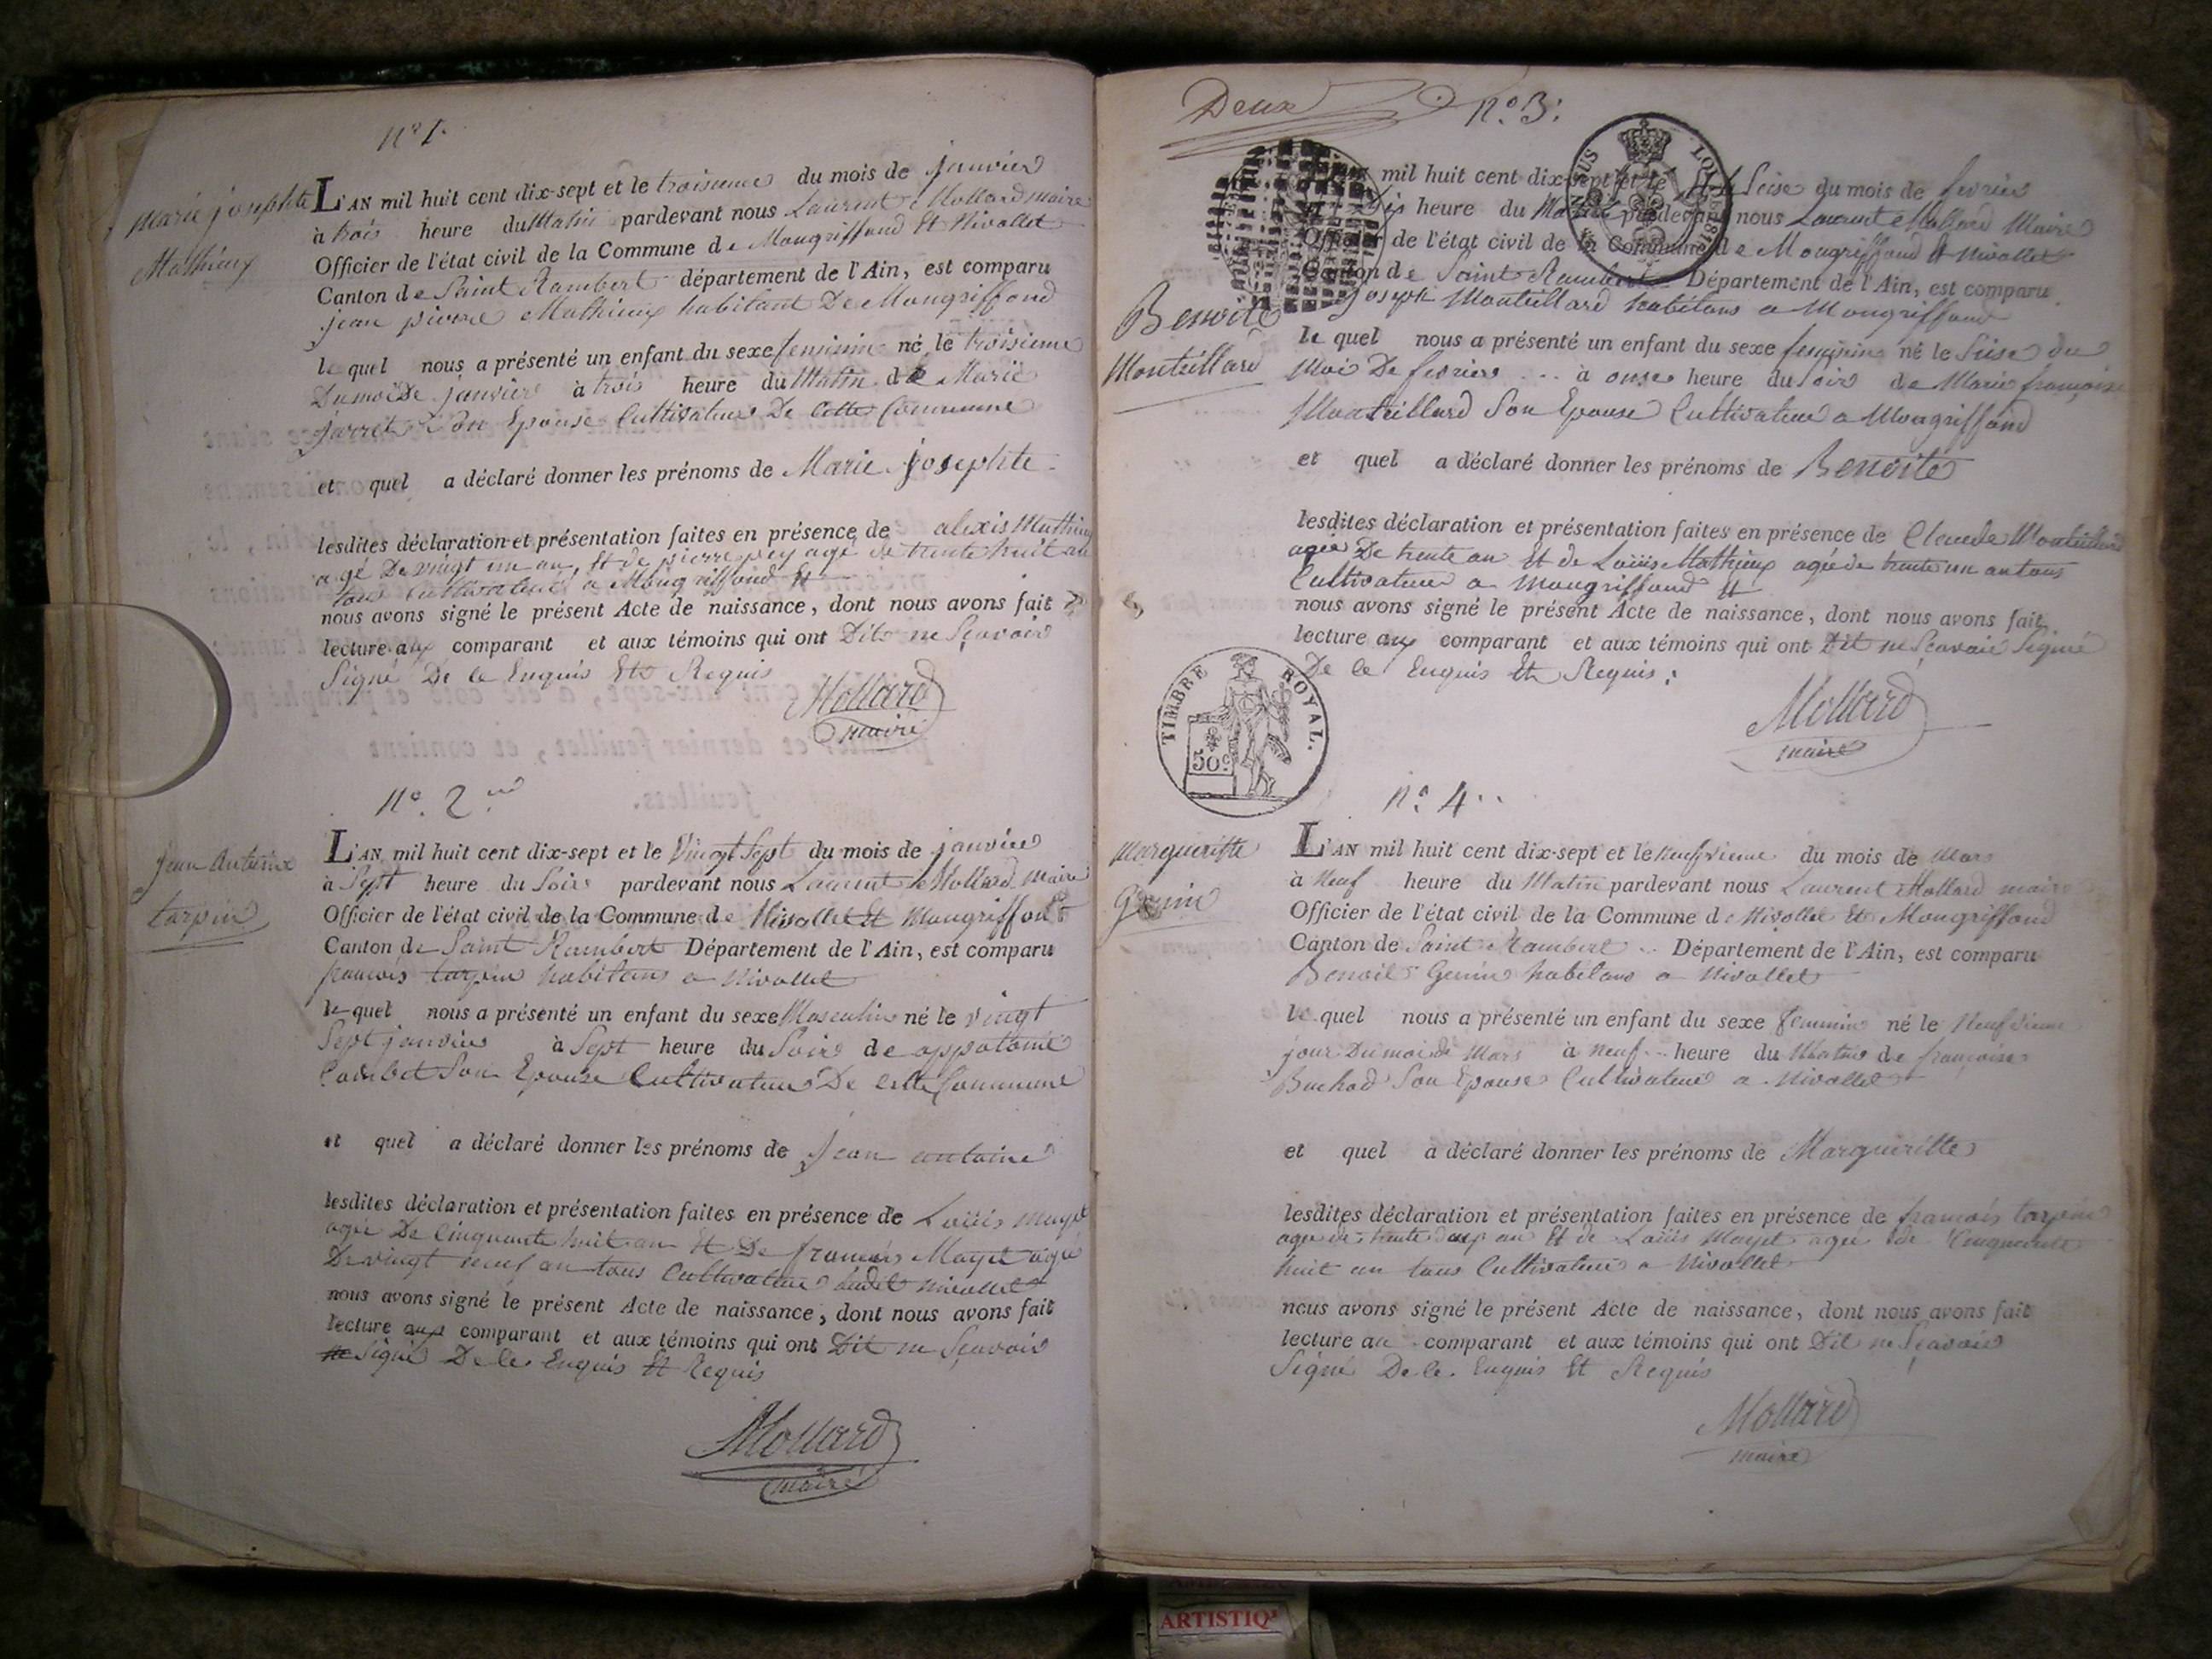 n° 1.
Marie josephte
Mathieux
L'AN mil huit cent dix-sept et le troisieme du mois de janvier
à trois heure du Matin pardevant nous Laurent Mollard maire
Officier de l'état civil de la Commune de Mongriffond Et Nivollet
Canton de Saint Rambert département de l'Ain, est comparu
jean pierre Mathieux habitant De Mongriffond
le quel nous a présenté un enfant du sexe feminin né le troisieme
Du moi De janvier à trois heure du Matin de Marie
jarret Son Epouse Cultivateur De Cette Commune
et quel a déclaré donner les prénoms de Marie josephte
lesdites déclaration et présentation faites en présence de alexis Mathieux
agé De vingt un an, Et de pierre pey agé de trente huit an
tous Cultivateur a Mongriffond Et
nous avons signé le présent Acte de naissance, dont nous avons fait
lecture aux comparant et aux témoins qui ont Dits ne Sçavoir
Signé De le Enquis Et Requis
Mollard
maire
n°. 2
jean Antoine
tarpin
L'AN mil huit cent dix-sept et le Vingt Sept du mois de janvier
à Sept heure du Soir pardevant nous Laurent Mollard maire
Officier de l'état civil de la Commune de Nivollet Et Mongriffond
Canton de Saint Rambert Département de l'Ain, est comparu
francois tarpin habitans a Nivollet
le quel nous a présenté un enfant du sexe Masculin né le vingt
Sept janvier à Sept heure du Soir de appolonie
Combet Son Epouse Cultivateur De cette Commune
et quel a déclaré donner les prénoms de Jean antoine
lesdites déclaration et présentation faites en présence de Loüis Mayet
agée De Cinquante huit an Et De francois Mayet agé
De vingt neuf an tous Cultivateur audit nivollet
nous avons signé le présent Acte de naissance, dont nous avons fait
lecture aux comparant et aux témoins qui ont Dit ne Sçavoir
Signé De le Enquis Et Requis
Mollard
maire
Deux
n°. 3:
Benoite
Monteillard
mil huit cent dix-sept et le Seise du mois de fevrier
heure du Matin pardevant nous Laurent Mollard Maire
Officier de l'état civil de la Commune de Mongriffond Et Nivollet
Canton de Saint Rambert Département de l'Ain, est comparu
Joseph Monteillard habitans a Mongriffond
le quel nous a présenté un enfant du sexe feminin né le Seise du
Moi De fevrier à onse heure du Soir de Marie françoise
Monteillard Son Epouse Cultivateur a Mongriffond
et quel a déclaré donner les prénoms de Benoite
lesdites déclaration et présentation faites en présence de Claude Monteillard
agée De trente an Et de Loüis Mathieux agée de trente un an tous
Cultivateur a Mongriffond Et
nous avons signé le présent Acte de naissance, dont nous avons fait
lecture aux comparant et aux témoins qui ont Dit ne Sçavoir Signé
De le Enquis Et Requis:
TIMBRE ROYAL.
50c
Mollard
maire
n°. 4
Margueritte
Genin
L'AN mil huit cent dix-sept et le neufvieme du mois de Mars
à Neuf heure du Matin pardevant nous Laurent Mollard maire
Officier de l'état civil de la Commune de Nivollet Et Mongriffond
Canton de Saint Rambert Département de l'Ain, est comparu
Benoit Genin habitans a Nivollet
le quel nous a présenté un enfant du sexe feminin né le Neufvieme
jour Du moi de Mars à neuf heure du Matin de françoise
Buchod Son Epouse Cultivateur a Nivollet
et quel a déclaré donner les prénoms de Marguerittte
lesdites déclaration et présentation faites en présence de francois tarpin
agée de trente an Et de Loüis Mayet agée de Cinquante
huit an tous Cultivateur a Nivollet
nous avons signé le présent Acte de naissance, dont nous avons fait
lecture au comparant et aux témoins qui ont Dit ne Sçavoir
Signé De le Enquis Et Requis
Mollard
maire
ARTISTIQ